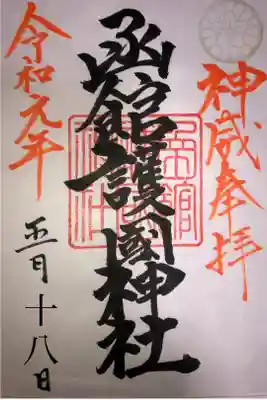 神威奉拝
函館護國神社
令和元年
五月十八日